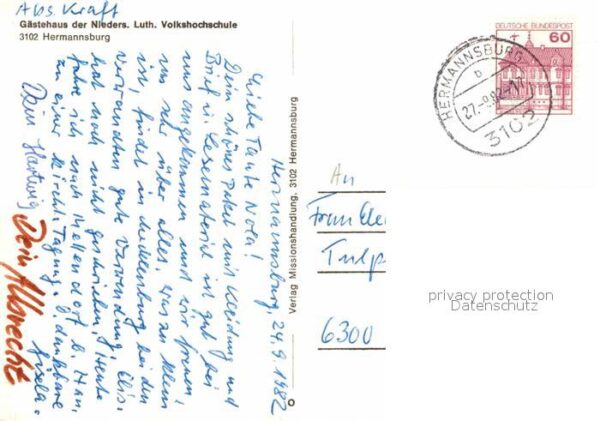 Abs. Kraft
Gästehaus der Nieders. Luth. Volkshochschule
3102 Hermannsburg
Hermannsburg, 24.9.1982
Liebe Tante Nora!
Dein schönes Paket mit Kleidung und
Brief u. Lesematerial ist gut bei
uns angekommen und wir freuen
uns sehr über alles. Was zu klein
ist, findet in Mecklenburg bei den
Verwandten gute Verwendung. Elis.
hat noch nicht geschrieben. Heute
fahre ich nach Mellendorf b. Han.
zu einer kirchl. Tagung. Dankbare
Gisela.
Dein Hartwig
Dein Albrecht
Verlag Missionshandlung, 3102 Hermannsburg
DEUTSCHE BUNDESPOST
60
HERMANNSBURG
b
27.-9.82-17
3102
An
Frau
Tulp
6300
privacy protection
Datenschutz